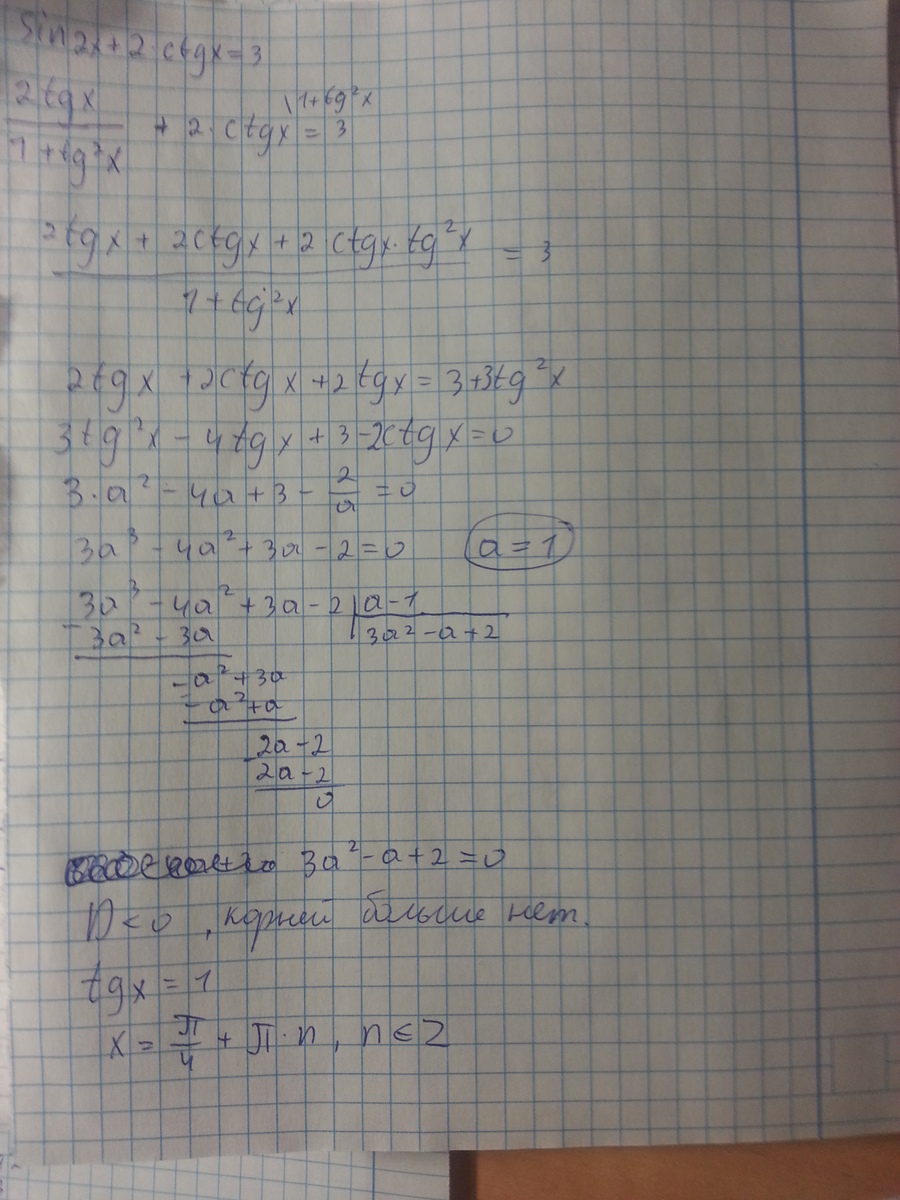 sin2x + 2·ctgx = 3
2tgx / 1+tg²x + 2·ctgx \1+tg²x = 3
2tgx + 2ctgx + 2ctgx·tg²x / 1+tg²x = 3
2tgx + 2ctgx + 2tgx = 3+3tg²x
3tg²x - 4tgx + 3 - 2ctgx = 0
3·a² - 4a + 3 - 2/a = 0
3a³ - 4a² + 3a - 2 = 0 a = 1
3a³ - 4a² + 3a - 2 | a - 1
- 3a² - 3a 3a² - a + 2
- a² + 3a
- a² + a
2a - 2
- 2a - 2
0
3a² - a + 2 = 0
D < 0 , корней больше нет.
tgx = 1
x = π/4 + π·n, n ∈ Z